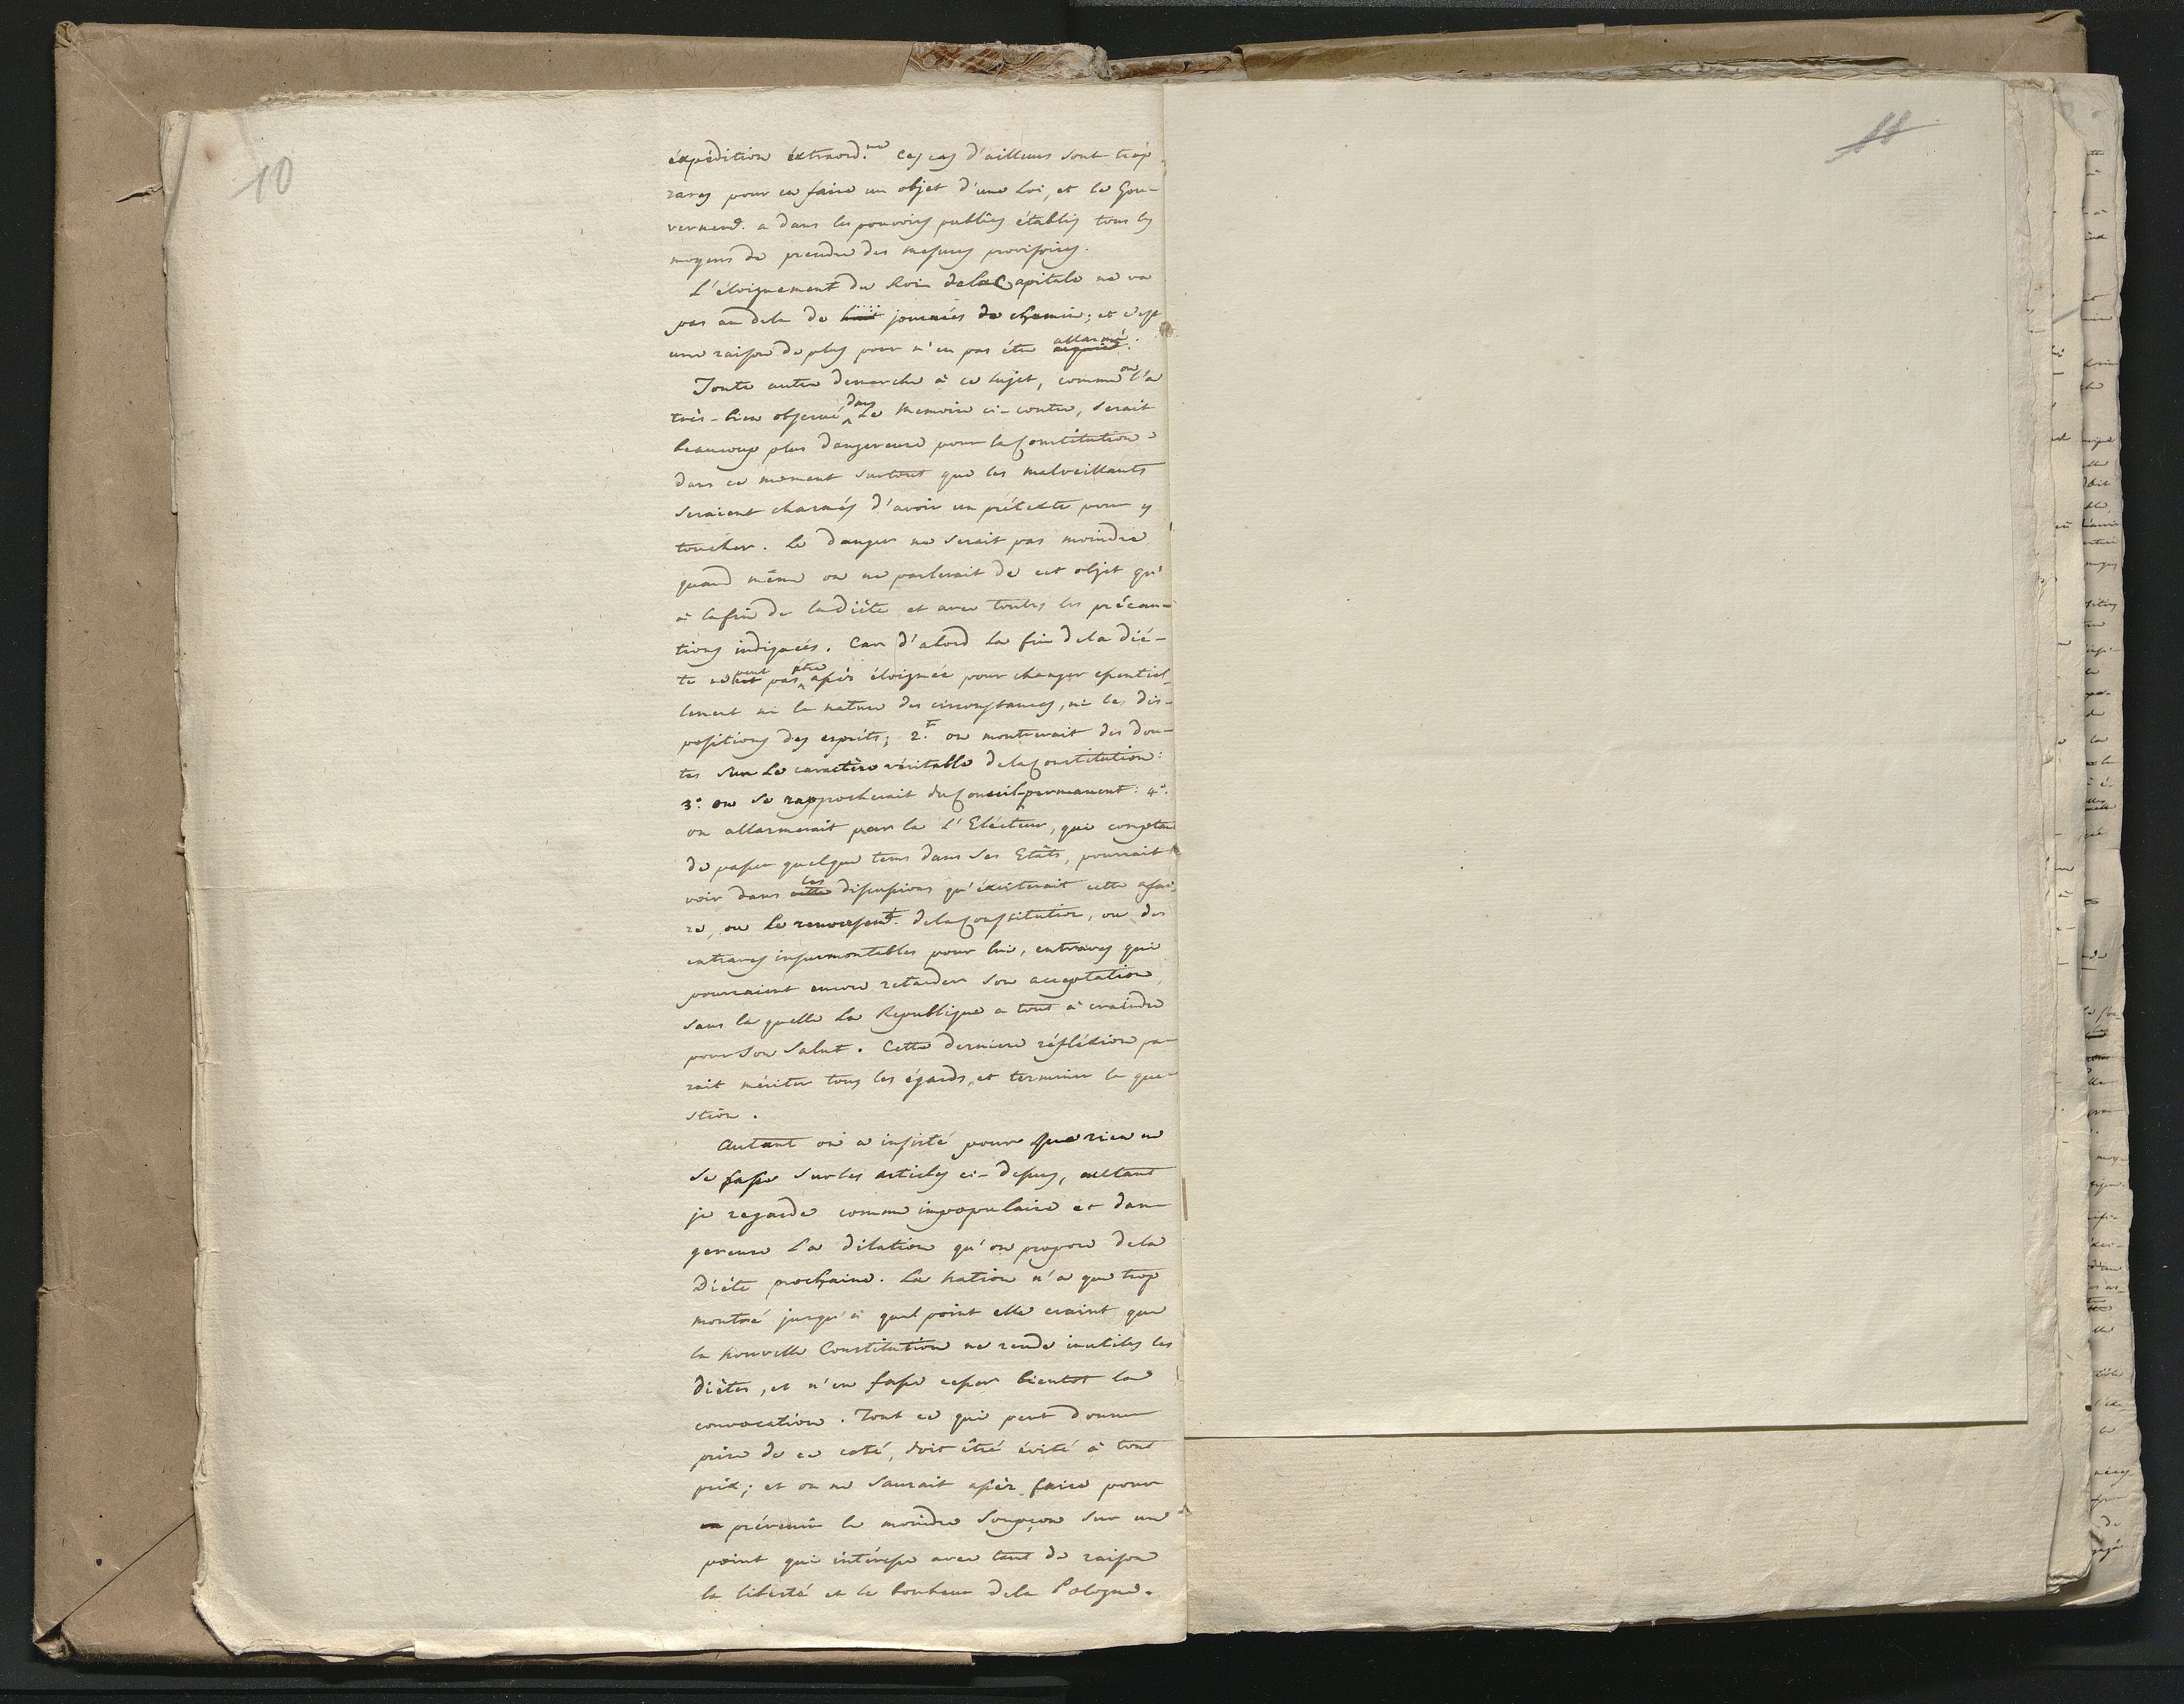 10
11
éxpédition éxtraord.re Ces cas d'ailleurs sont trop
rares pour en faire un objet d'une Loi, et le Gou-
vernem.t a dans les pouvoirs publics établis tous les
moyens de prendre des mesures provisoires.
L'éloignement du Roi de la Capitale ne va
pas au dela de huit journées de chemin; et c'est
une raison de plus pour n'en pas être allarmé.
Toute autre demarche à ce sujet, comme on l'a
très-bien observé dans Le Memoire ci-contre, serait
beaucoup plus dangereuse pour la Constitution
dans ce moment surtout que les malveillants
seraient charmés d'avoir un prétexte pour y
toucher. Le danger ne serait pas moindre
quand même on ne parlerait de cet objet qu'
à la fin de la diète et avec toutes les précau-
tions indiquées. Car d'abord la fin de la diè-
te ne peut pas être assés éloignée pour changer essentiel-
lement ni la nature des circonstances, ni les dis-
positions des esprits; 2.t on montrerait des dou-
tes sur Le caractère véritable de la Constitution:
3.° on se rapprocherait du Conseil-permanent: 4.°
on allarmerait par la l'Electeur, qui comptant
de passer quelque tems dans ses Etâts, pourrait
voir dans les discussions qu'éxciterait cette afai-
re, ou Le renversem.t de la Constitution, ou des
entraves insurmontables pour lui, entraves qui
pourraient encore retarder son acceptation,
sans la quelle La Republique a tout à craindre
pour son salut. Cette derniere réfléxion pa-
rait mériter tous les égards, et terminer la que-
stion.
Autant on a insisté pour que rien ne
se fasse sur les articles ci-dessus, autant
je regarde comme impopulaire et dan-
gereuse La dilation qu'on propose de la
Diète prochaine. La Nation n'a que trop
montré jusqu'à quel point elle craint que
la nouvelle Constitution ne rende inutiles les
diètes, et n'en fasse cesser bientot la
convocation. Tout ce qui peut donner
prise de ce coté, doit être évité à tout
prix; et on ne saurait assèz faire pour
prévenir le moindre soupçon sur un
point qui intéresse avec tant de raison
la liberté et le bonheur de la Pologne.